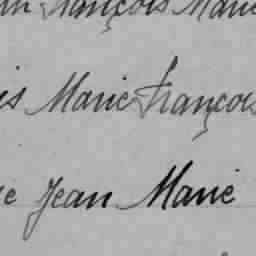 François Marie
Marie François
Jean Marie